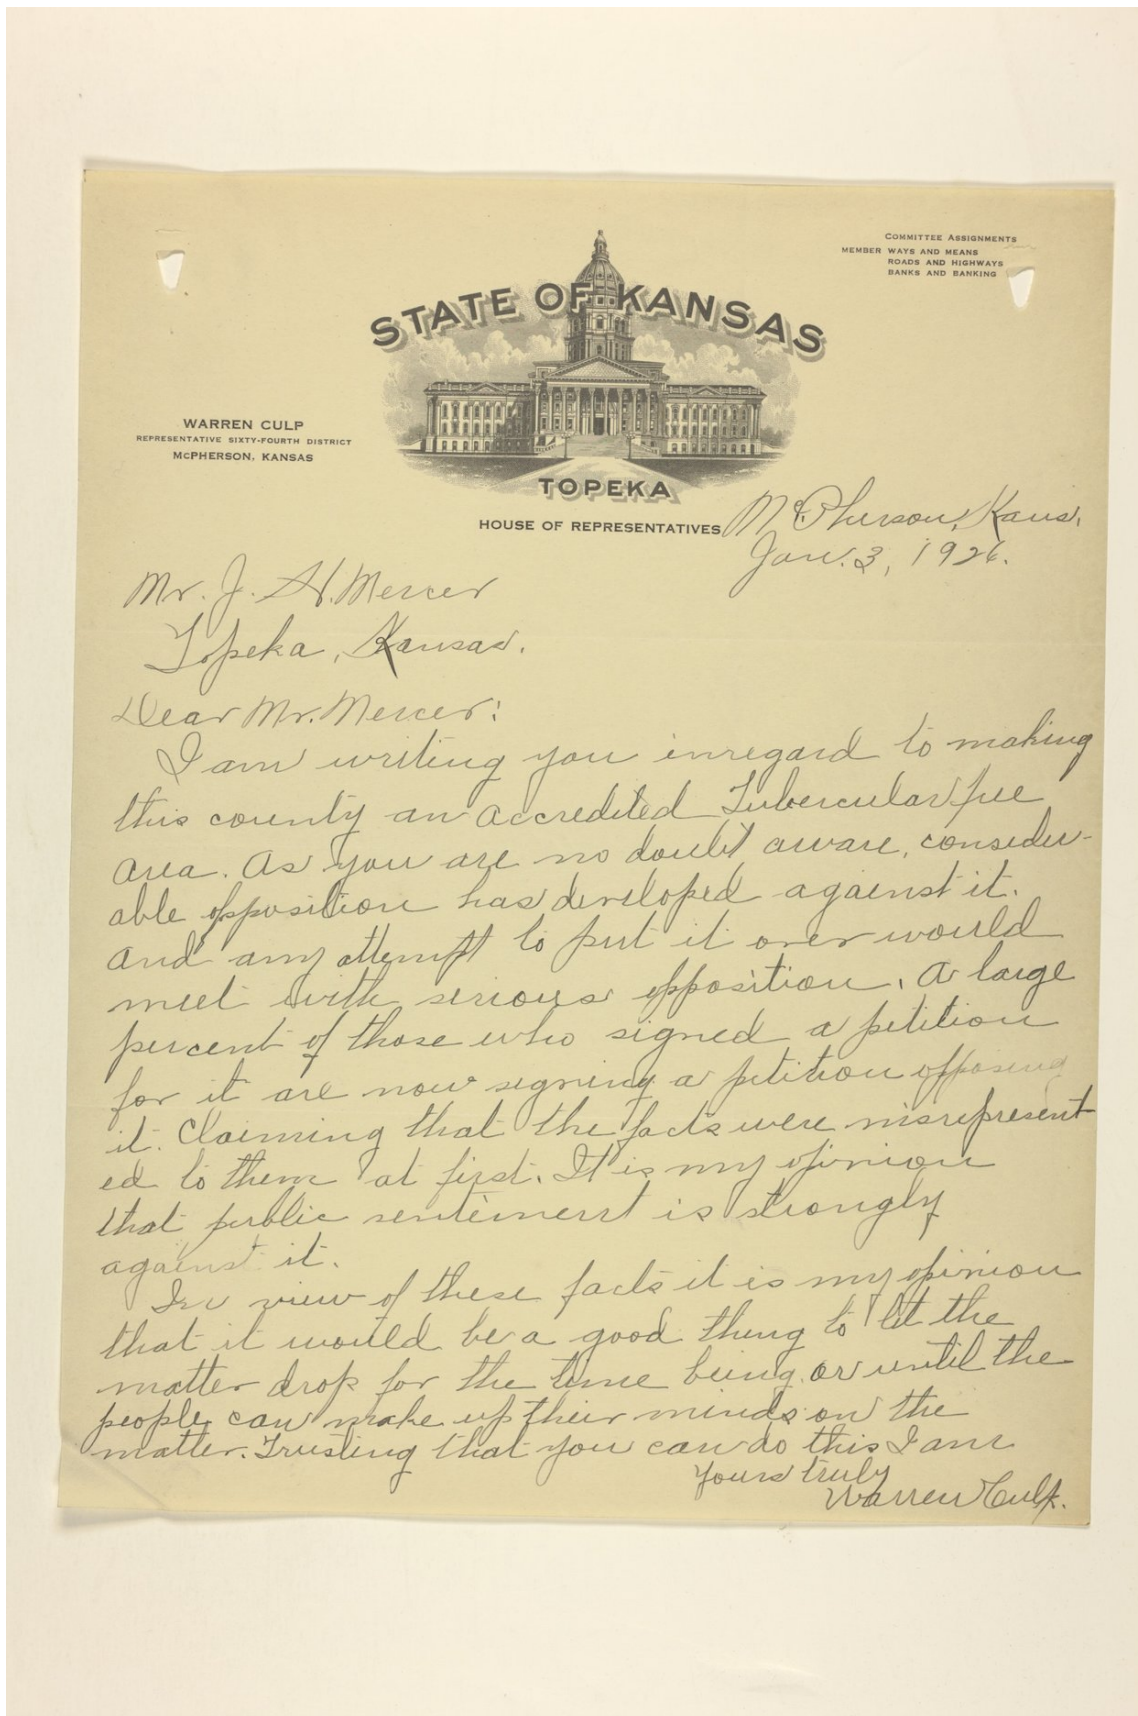 COMMITTEE ASSIGNMENTS
MEMBER WAYS AND MEANS
ROADS AND HIGHWAYS
BANKS AND BANKING
STATE OF KANSAS
WARREN CULP
REPRESENTATIVE SIXTY-FOURTH DISTRICT
MCPHERSON, KANSAS
TOPEKA
HOUSE OF REPRESENTATIVES
McPherson, Kans.
Jan. 3, 1926.
Mr. J. H. Mercer
Topeka, Kansas.
Dear Mr. Mercer:
I am writing you inregard to making
this county an accredited Tubercular free
area. As you are no doubt aware, consider-
able opposition has developed against it.
and any attempt to put it over would
meet with serious opposition. A large
percent of those who signed a petition
for it are now signing a petition opposing
it. Claiming that the facts were misrepresent
ed to them at first. It is my opinion
that public sentiment is strongly
against it.
In view of these facts it is my opinion
that it would be a good thing to let the
matter drop for the time being or until the
people can make up their minds on the
matter. Trusting that you can do this I am
Yours truly
Warren Culp.